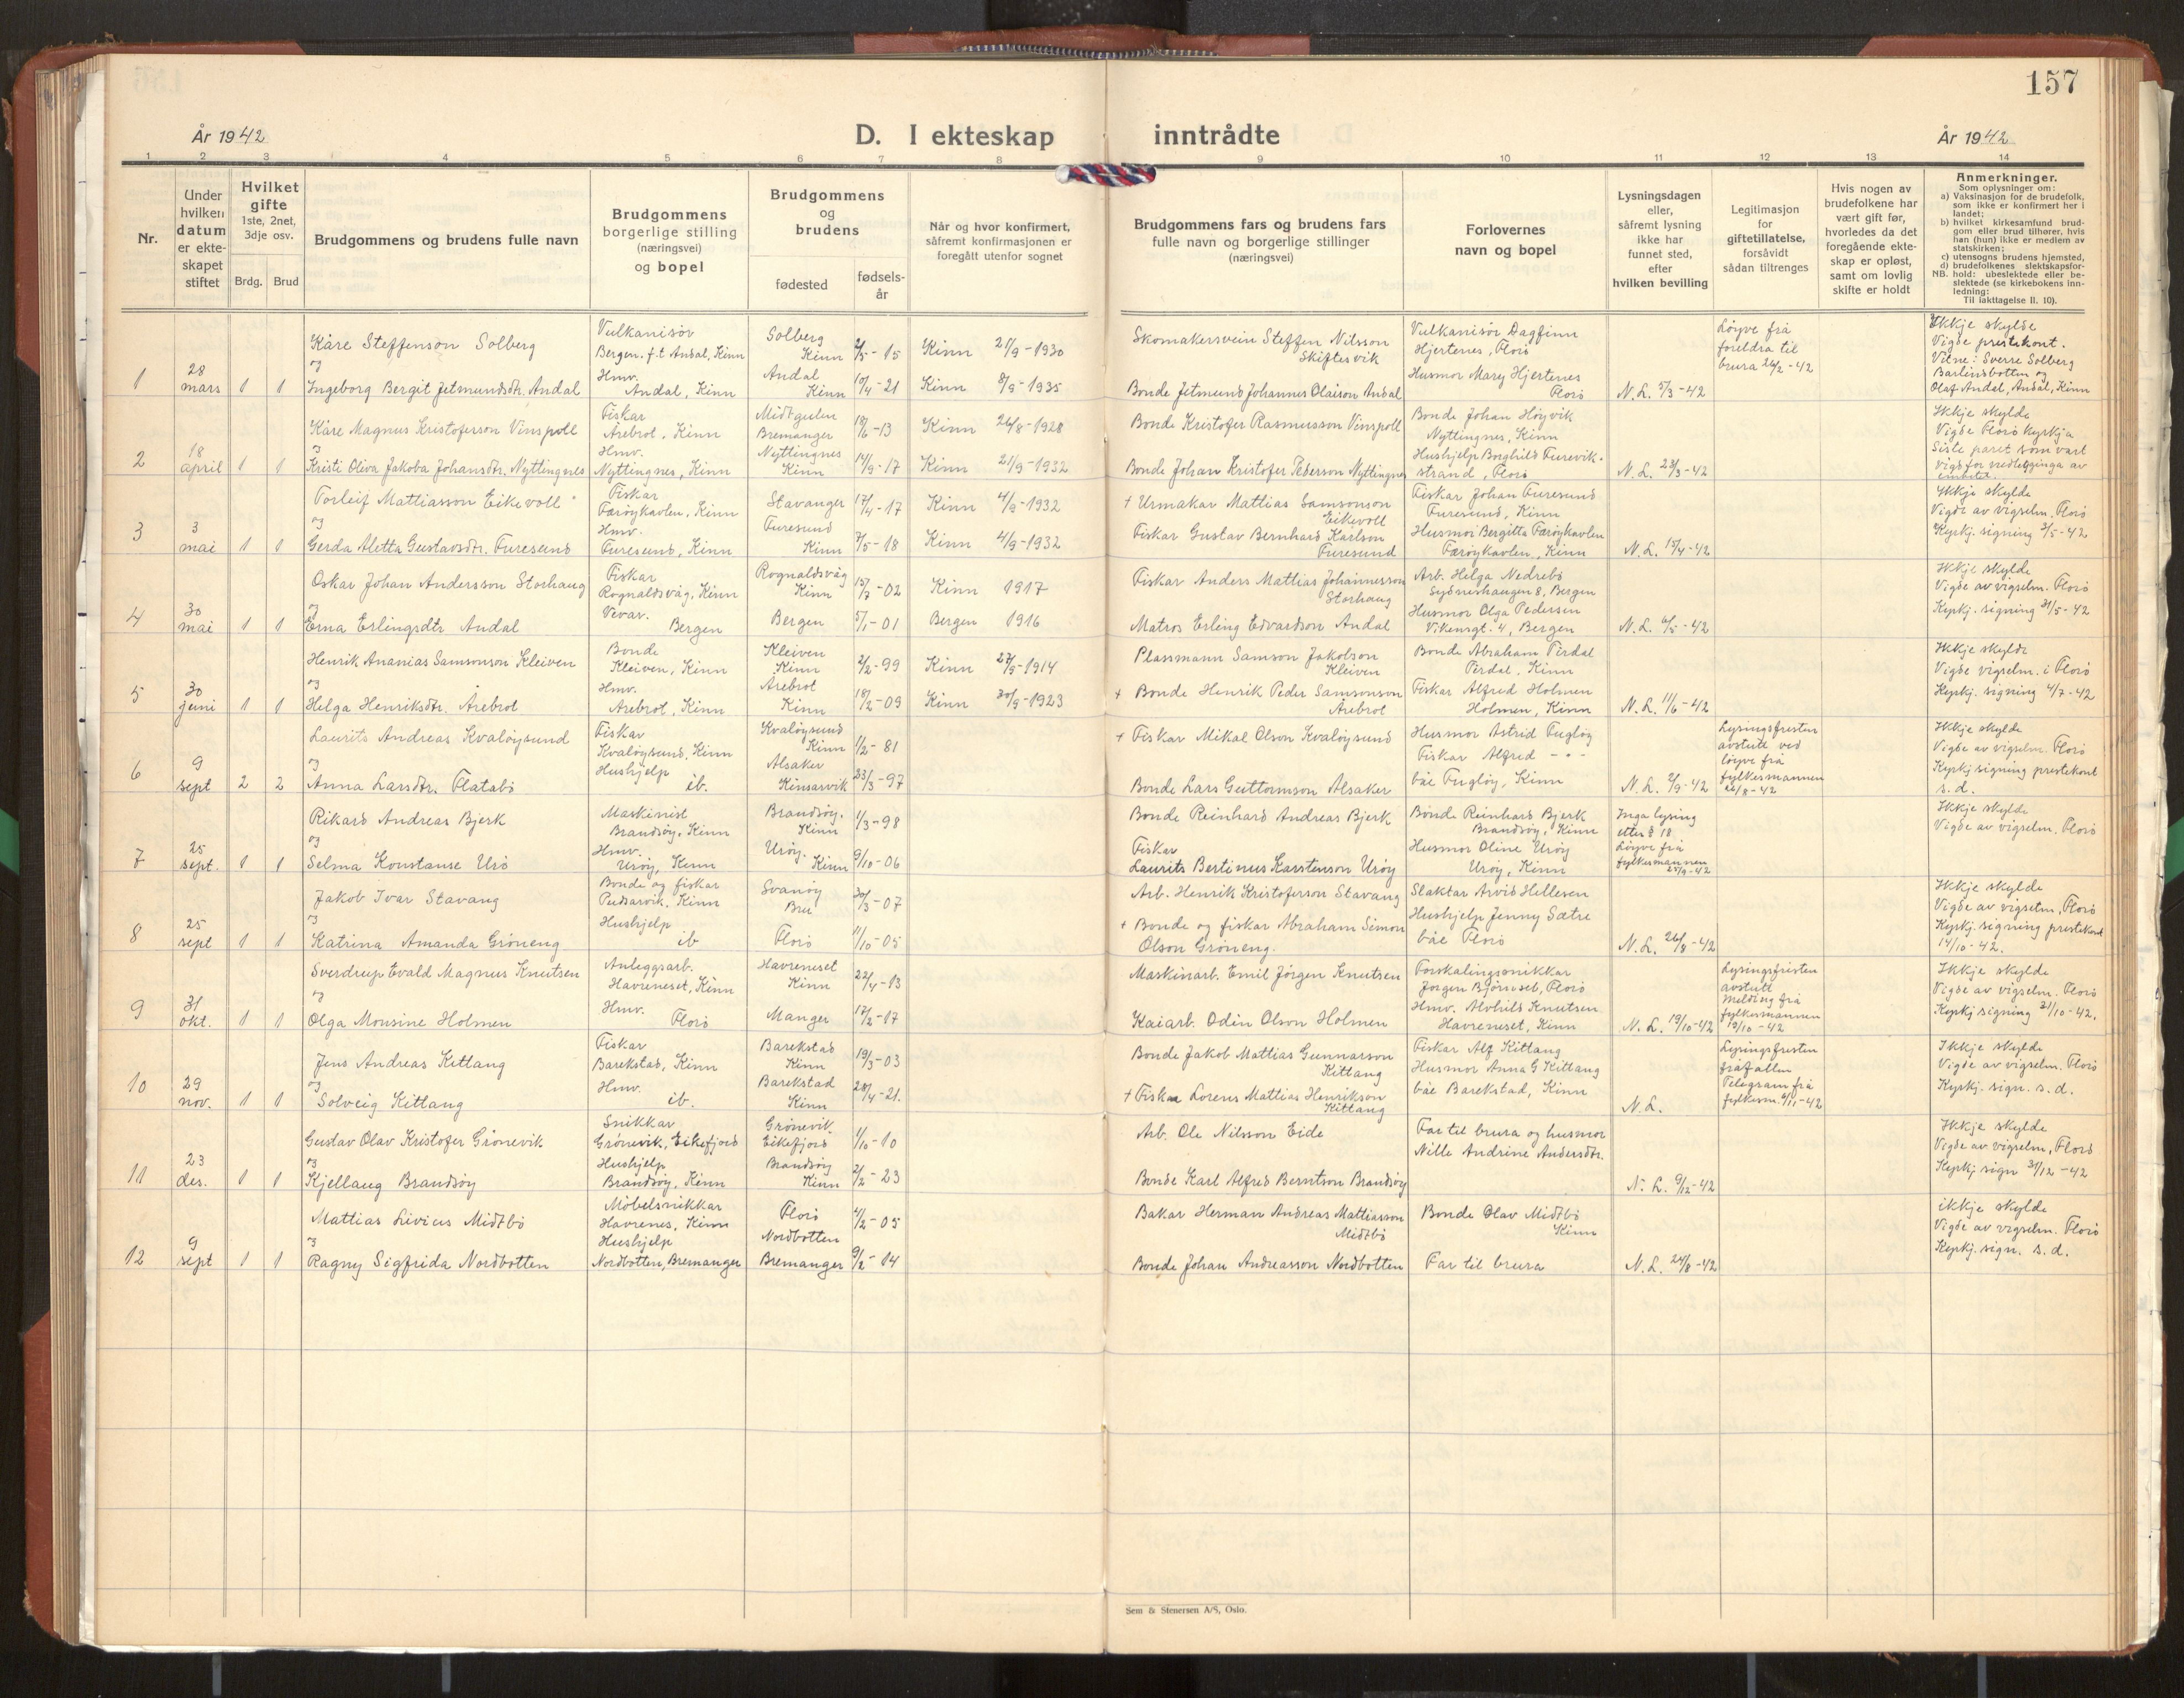 157
År 1942
D. I ekteskap inntrådte
År 1942
1 2 3 4 5 6 7 8 9 10 11 12 13 14
Nr.
Under
hvilken
datum
er ekte-
skapet
stiftet
Hvilket
gifte
1ste, 2net,
3dje osv.
Brdg. Brud
Brudgommens og brudens fulle navn
Brudgommens
borgerlige stilling
(næringsvei)
og bopel
Brudgommens
og
brudens
fødested
fødsels-
år
Når og hvor konfirmert,
såfremt konfirmasjonen er
foregått utenfor sognet
Brudgommens fars og brudens fars
fulle navn og borgerlige stillinger
(næringsvei)
Forlovernes
navn og bopel
Lysningsdagen
eller,
såfremt lysning
ikke har
funnet sted,
efter
hvilken bevilling
Legitimasjon
for
giftetillatelse,
forsåvidt
sådan tiltrenges
Hvis nogen av
brudefolkene har
vært gift før,
hvorledes da det
foregående ekte-
skap er opløst,
samt om lovlig
skifte er holdt
Anmerkninger.
Som oplysninger om:
a) Vaksinasjon for de brudefolk,
som ikke er konfirmert her i
landet;
b) hvilket kirkesamfund brud-
gom eller brud tilhører, hvis
han (hun) ikke er medlem av
statskirken;
c) utensogns brudens hjemsted,
d) brudefolkenes slektskapsfor-
NB. hold: ubeslektede eller be-
slektede (se kirkebokens inn-
ledning:
Til iakttagelse II. 10).
1
28
mars
1 1
Kåre Steffenson Solberg
og
Ingeborg Bergit Jetmundsdtr. Andal
Vulkanisør
Bergen. f.t Andal, Kinn
Hmv.
Andal, Kinn
Solberg
Kinn
Andal
Kinn
/5-15
10/4-21
Kinn 21/9-1930
Kinn 8/9-1935
Skomakersvein Steffen Nilsson
Skiftesvik
Bonde Jetmund Johannes Olaison Andal
Vulkanisør Dagfinn
Hjertenes, Florø
Husmor Mary Hjertenes
Florø
N.L. 5/3-42
Løyve frå
foreldra til
brura 26/2-42
Ikkje skylde
Vigde prestekont.
Vitne: Sverre Solberg
Barlindsbotten og
Olaf Andal, Andal, Kinn
2
18
april
1 1
Kåre Magnus Kristoferson Vinspoll
og
Kristi Oliva Jakoba Johansdtr. Nyttingnes
Fiskar
Årebrot, Kinn
Hmv.
Nyttingnes, Kinn
Midtgulen
Bremanger
Nyttingnes
Kinn
18/6-13
14/9-17
Kinn 26/8-1928
Kinn 21/9-1932
Bonde Kristofer Rasmusson Vinspoll
Bonde Johan Kristofer Pederson Nyttingnes
Bonde Johan Høyvik
Nyttingnes, Kinn
Hushjelp Borghild Furevik-
strand, Florø
N.L. 23/3-42
Ikkje skylde
Vigde Florø kyrkja
Siste paret som vart
vigd for nedlegginga av
embetet.
3
3
mai
1 1
Torleif Mattiasson Eikevoll
og
Gerda Aletta Gustavsdtr. Furesund
Fiskar
Færøykavlen, Kinn
Hmv.
Furesund, Kinn
Stavanger
Furesund
Kinn
17/4-17
7/5-18
Kinn 4/9-1932
Kinn 4/9-1932
+ Urmakar Mattias Samsonson
Eikevoll
Fiskar Gustav Bernhard Karlson
Furesund
Fiskar Johan Furesund
Furesund, Kinn
Husmor Bergitta Færøykavlen
Færøykavlen, Kinn
N.L. 15/4-42
Ikkje skylde
Vigde av vigselm. Florø
Kyrkj. signing 3/5-42
4
30
mai
1 1
Oskar Johan Andersson Storhaug
og
Erna Erlingsdtr Andal
Fiskar
Rognaldsvåg, Kinn
Vevar.
Bergen
Rognaldsvåg
Kinn
Bergen
15/7-02
5/1-01
Kinn 1917
Bergen 1916
Fiskar Anders Mattias Johannesson
Storhaug
Matros Erling Edvardson Andal
Arb. Helga Nedrebø
Sydneshaugen 8, Bergen
Husmor Olga Pedersen
Vikensgt. 4, Bergen
N.L. 6/5-42
Ikkje skylde
Vigde av vigselm. Florø
Kyrkj. signing 31/5-42
5
30
juni
1 1
Henrik Ananias Samsonson Kleiven
og
Helga Henriksdtr. Årebrot
Bonde
Kleiven, Kinn
Hmv.
Årebrot, Kinn
Kleiven
Kinn
Årebrot
Kinn
2/2-99
18/2-09
Kinn 27/9-1914
Kinn 30/9-1923
Plassmann Samson Jakobson
Kleiven
+ Bonde Henrik Peder Samsonson
Årebrot
Bonde Abraham Tirdal
Tirdal, Kinn
Fiskar Alfred Holmen
Holmen, Kinn
N.L. 11/6-42
Ikkje skylde
Vigde vigselm. i Florø
Kyrkj. signing 4/7-42
6
9
sept
2 2
Laurits Andreas Kvaløysund
og
Anna Larsdtr. Flatabø
Fiskar
Kvaløysund, Kinn
Hushjelp
ib.
Kvaløysund
Kinn
Alsaker
Kinsarvik
1/2-81
23/3-97
+ Fiskar Mikal Olson Kvaløysund
Bonde Lars Guttormson Alsaker
Husmor Astrid Fugløy
Fiskar Alfred - " -
båe Fugløy, Kinn
N.L. 2/9-42
Lysingsfristen
avstutt ved
løyve frå
fylkesmannen
26/8-42
Ikkje skylde
Vigde av vigselm. Florø
Kyrkj signing prestekont
s.d.
7
25
sept.
1 1
Rikard Andreas Bjerk
og
Selma Konstanse Urø
Maskinist
Brandsøy, Kinn
Hmv.
Urøy, Kinn
Brandsøy,
Kinn
Urøy
Kinn
1/3-98
9/10-06
Bonde Reinhard Andreas Bjerk
Fiskar
Laurits Bertinus Karstenson Urøy
Bonde Reinhard Bjerk
Brandsøy, Kinn
Husmor Oline Urøy
Urøy, Kinn
Inga lysing
etter § 18
Løyve frå
fylkesmannen
25/9-42
Ikkje skylde
Vigde av vigselm. Florø
8
25
sept
1 1
Jakob Ivar Stavang
og
Katrina Amanda Grøneng
Bonde og fiskar
Pudsarvik, Kinn
Hushjelp
ib
Svanøy
Bru
Florø
30/3-07
11/10-05
Arb. Henrik Kristoferson Stavang
+ Bonde og fiskar Abraham Simon
Olson Grøneng.
Slaktar Arvid Hillesen
Hushjelp Jenny Sætre
båe Florø
N.L. 26/8-42
Ikkje skylde
Vigde av vigselm, Florø
Kyrkj. signing prestekont
14/10-42.
9
31
okt.
1 1
Sverdrup Evald Magnus Knutsen
og
Olga Monsine Holmen
Anleggsarb.
Havreneset, Kinn
Hmv.
Florø
Havreneset
Kinn
Manger
22/4-13
17/2-17
Maskinarb. Emil Jørgen Knutsen
Kaiarb. Odin Olson Holmen
Forskalingssnikkar
Jørgen Bjørnset, Florø
Hmv. Alvhild Knutsen
Havreneset, Kinn
N.L. 19/10-42
Lysingsfristen
avstutt
Melding frå
fylkesmannen
19/10-42
Ikkje skylde
Vigde av vigselm. Florø
Kyrkj signing 31/10-42.
10
29
nov.
1 1
Jens Andreas Kittang
og
Solveig Kittang
Fiskar
Barekstad, Kinn
Hmv.
ib.
Barekstad
Kinn
Barekstad
Kinn
19/3-03
28/4-21.
Bonde Jakob Mattias Gunnarson
Kittang
+ Fiskar Lorens Mattias Henrikson
Kittang
Fiskar Alf Kittang
Husmor Anna G Kittang
båe Barekstad, Kinn
N.L.
Lysingsfristen
fråfallen
Telegram frå
fylkesm. 6/11-42
Ikkje skylde
Vigde av vigselm. Florø
Kyrkj. sign. s.d.
11
23
des.
1 1
Gustav Olav Kristofer Grønevik
og
Kjellaug Brandsøy
Snikkar
Grønevik, Eikefjord
Hushjelp
Brandsøy, Kinn
Grønevik
Eikefjord
Brandsøy
Kinn
1/10-10
2/2-23
Arb. Ole Nilsson Eide
Bonde Karl Alfred Berntson Brandsøy
Far til brura og husmor
Nille Andrine Andersdtr.
N. L. 9/12-42
Ikkje skylde
Vigde av vigselm, Florø
Kyrkj. sign 31/12-42
12
9
sept
1 1
Mattias Livius Midtbø
og
Ragny Sigfrida Nordbotten
Møbelsnikkar
Havrenes, Kinn
Hushjelp
Nordbotten, Bremanger
Florø
Nordbotten
Bremanger
4/2-05
9/2-14
Bakar Herman Andreas Mattiasson
Midtbø
Bonde Johan Andreasson Nordbotten
Bonde Olav Midtbø
Kinn
Far til brura
N.L. 24/8-42
ikkje skylde
Vigde av vigselm. Florø
Kyrkj. sign. s.d.
Sem & Stenersen A/S, Oslo.